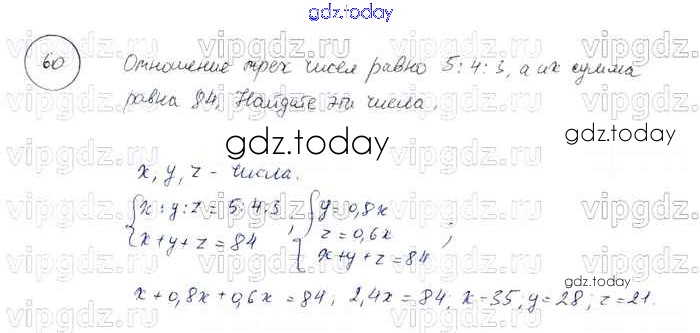 gdz.today
60 Отношение трех чисел равно 5:4:3, а их сумма
равна 84. Найдите эти числа.
gdz.today
x, y, z - числа.
{x:y:z=5:4:3 ; {y=0,8x
x+y+z=84 z=0,6x ;
x+y+z=84
gdz.today
x+0,8x+0,6x=84; 2,4x=84; x-35, y=28; z=21.
vipgdz.ru